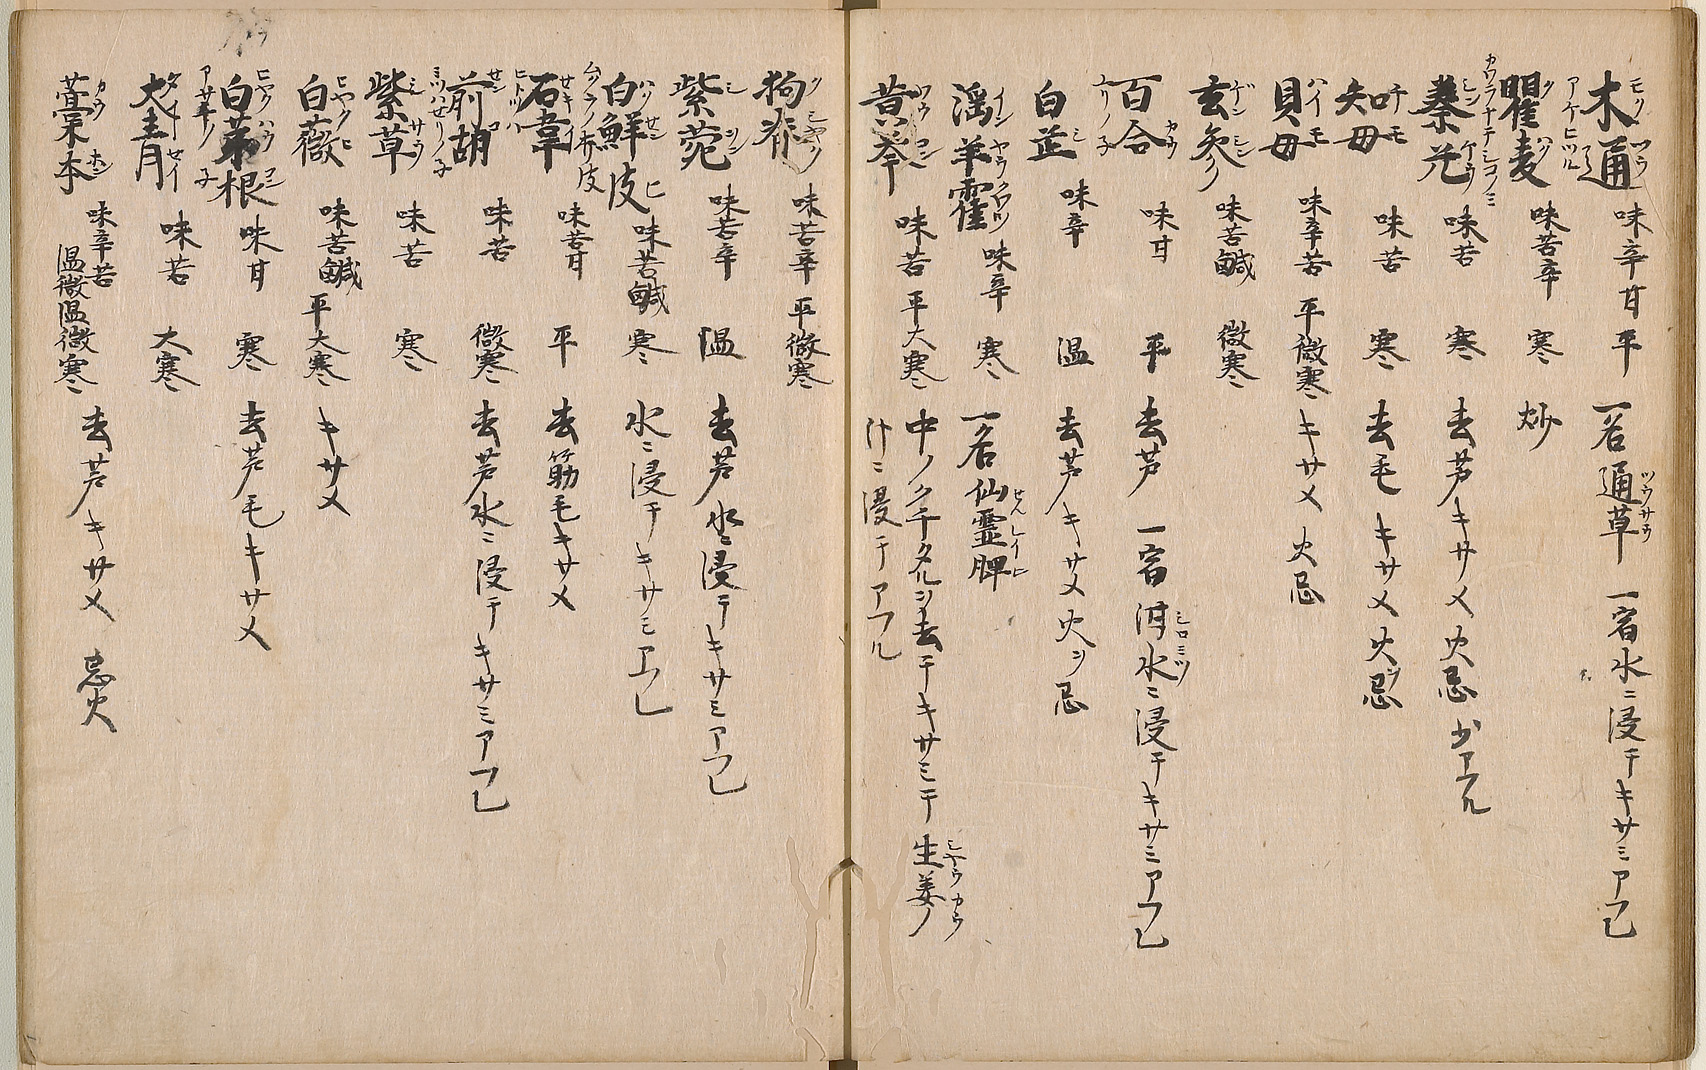 木通 味辛甘 平 一名通草 一宿水ニ浸テキサミアフ已
瞿麦 味苦辛 寒 炒
秦艽 味苦 寒 去芦キサメ 火忌 少アフル
知母 味苦 寒 去毛キサメ 火ヲ忌
貝母 味辛苦 平微寒 キサメ 火忌
玄参 味苦鹹 微寒
百合 味甘 平 去芦 一宿泔水ニ浸テキサミアフ已
白芷 味辛 温 去芦キサメ 火ヲ忌
淫羊霍 味辛 寒 一名仙霊脾
黄芩 味苦 平大寒 中ノクチタルヲ去テキサミテ 生姜ノ
汁ニ浸テアフル
狗脊 味苦辛 平微寒
紫菀 味苦辛 温 去芦 水ニ浸テキサミアフ已
白鮮皮 味苦鹹 寒 水ニ浸テキサミアフ已
石韋 味苦甘 平 去筋毛キサメ
前胡 味苦 微寒 去芦水ニ浸テキサミアフ已
紫草 味苦 寒
白薇 味苦鹹 平大寒 キサメ
白茅根 味甘 寒 去芦毛キサメ
大青 味苦 大寒
藁本 味辛苦 温微温微寒 去芦キサメ 忌火